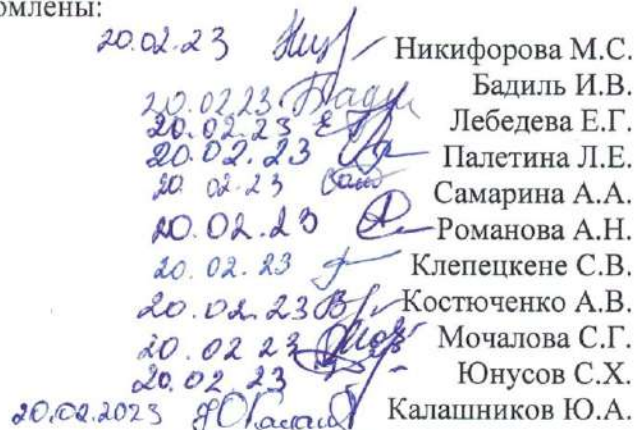 омлены:
20.02.23 Никифорова М.С.
20.02.23 Бадиль И.В.
20.02.23 Лебедева Е.Г.
20.02.23 Палетина Л.Е.
20.02.23 Самарина А.А.
20.02.23 Романова А.Н.
20.02.23 Клепецкене С.В.
20.02.23 Костюченко А.В.
20.02 23 Мочалова С.Г.
20.02.23 Юнусов С.Х.
20.02.2023 Калашников Ю.А.